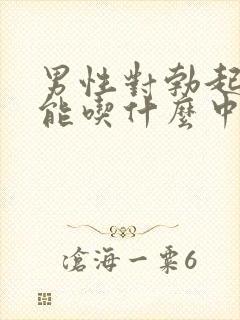 男性對勃起
能喫什麼中
滄海一粟6